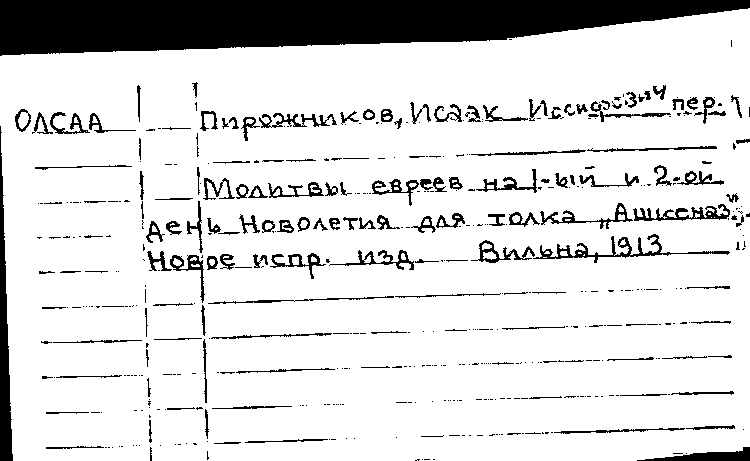 ОЛСАА Пирожников, Исаак Иосифович пер.
Молитвы евреев на 1-ый и 2-ой
день Новолетия для толка „Ашкеназ".
Новое испр. изд. Вильна, 1913